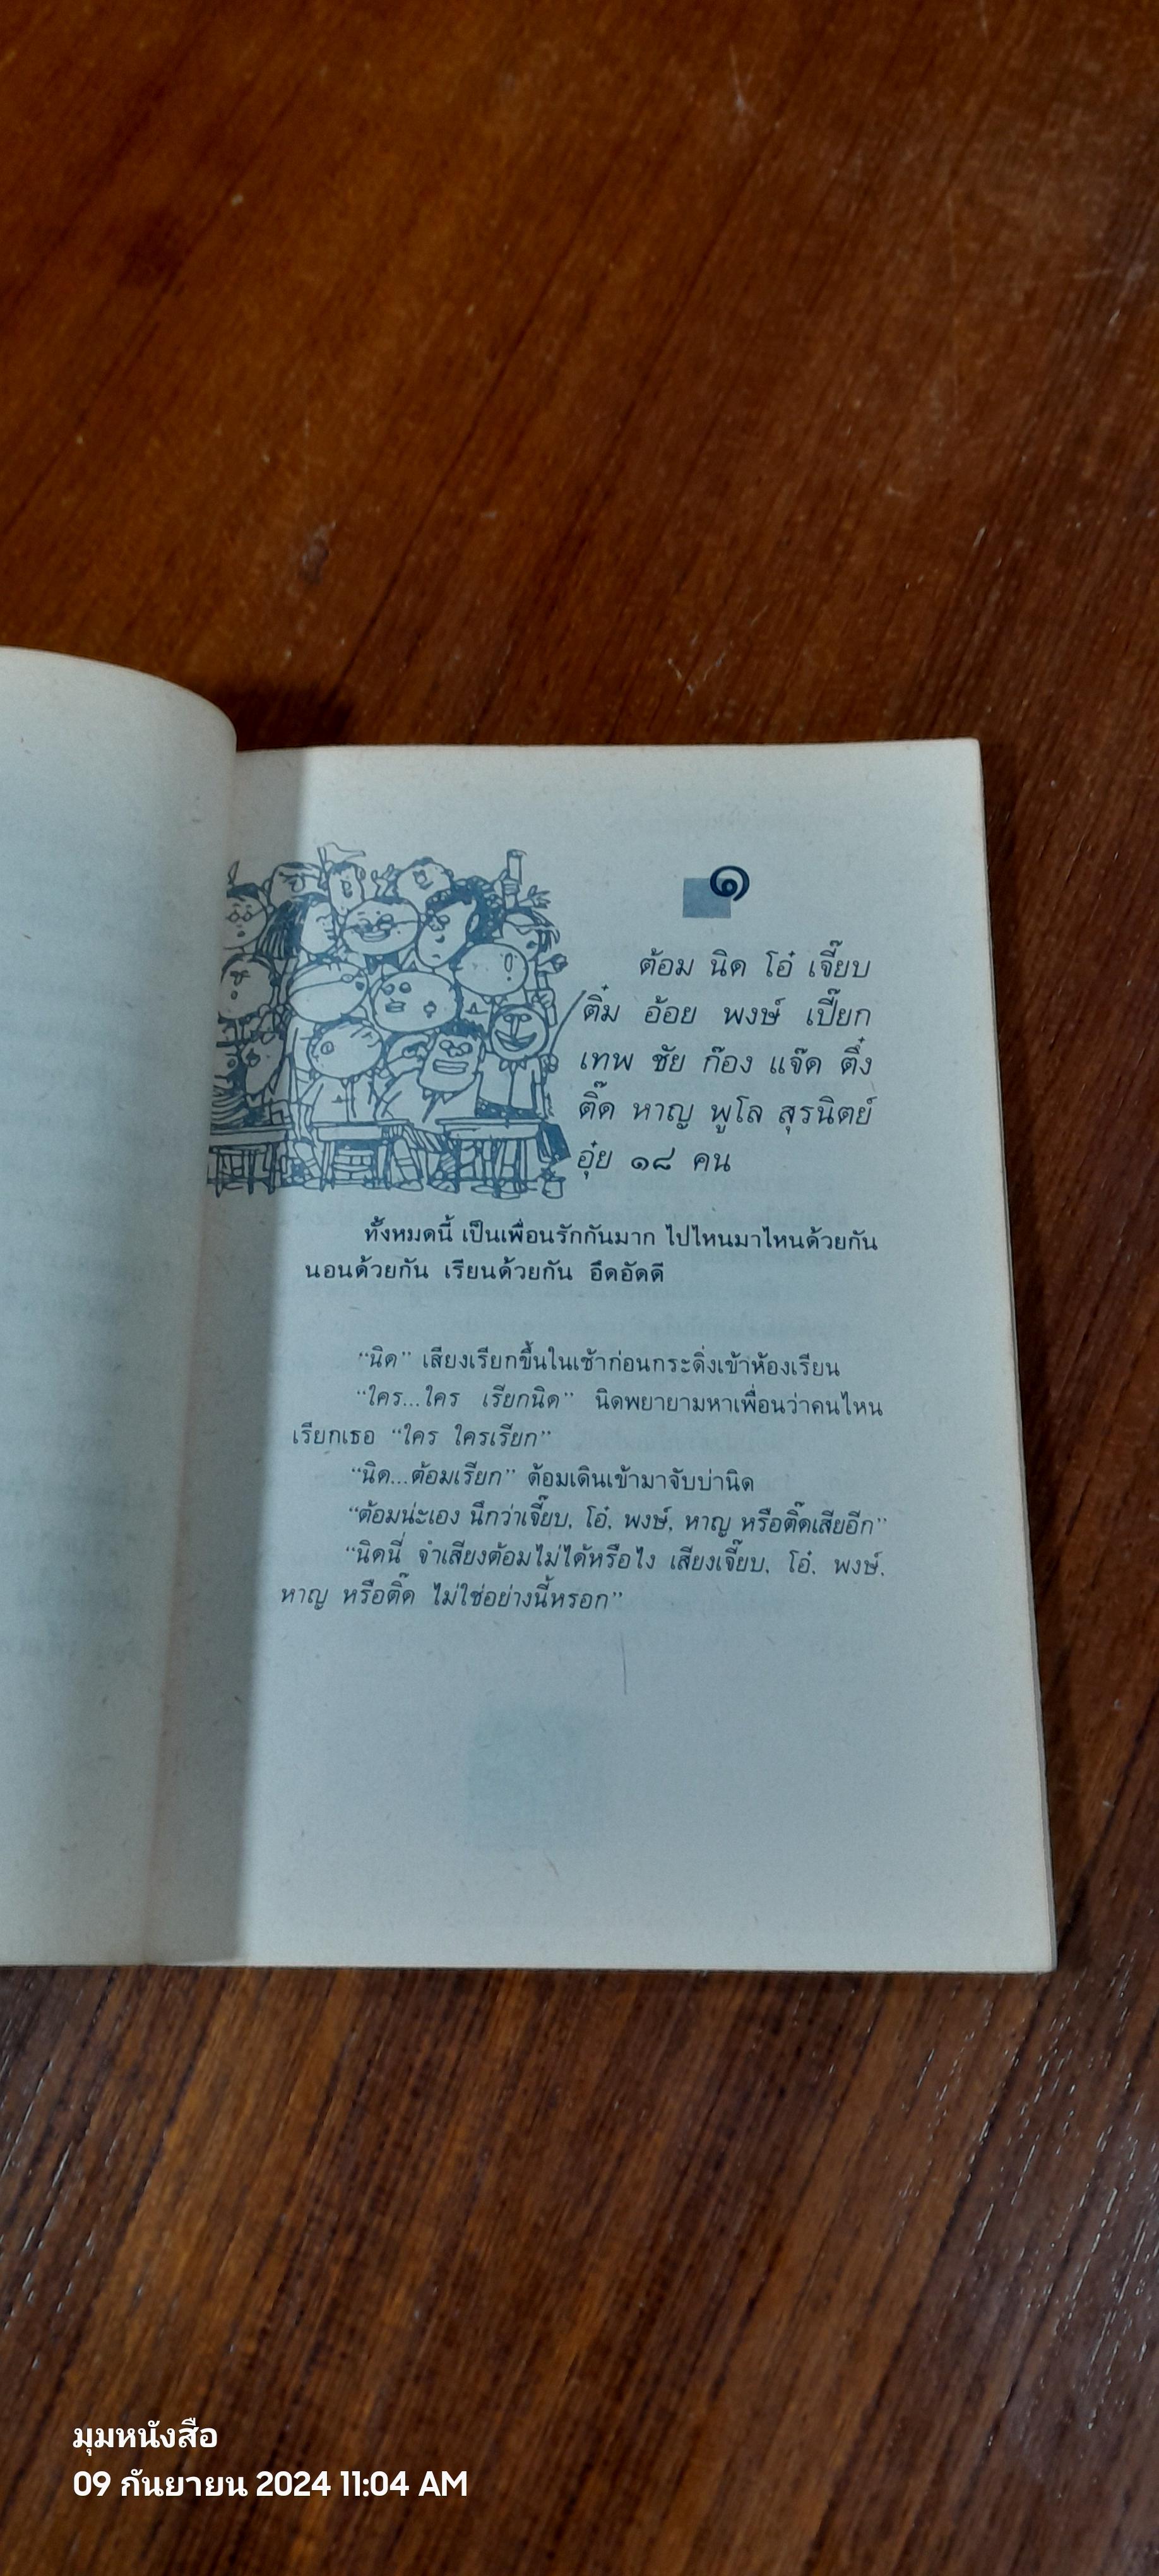 ๑
ต้อม นิด โอ๋ เจี๊ยบ
ติ๋ม อ้อย พงษ์ เปี๊ยก
เทพ ชัย ก๊อง แจ๊ด ติ๋ง
ติ๊ด หาญ พูโล สุรนิตย์
อุ๋ย ๑๘ คน
ทั้งหมดนี้ เป็นเพื่อนรักกันมาก ไปไหนมาไหนด้วยกัน
นอนด้วยกัน เรียนด้วยกัน อึดอัดดี
“นิด” เสียงเรียกขึ้นในเช้าก่อนกระดิ่งเข้าห้องเรียน
“ใคร...ใคร เรียกนิด” นิดพยายามหาเพื่อนว่าคนไหน
เรียกเธอ “ใคร ใครเรียก”
“นิด...ต้อมเรียก” ต้อมเดินเข้ามาจับบ่านิด
“ต้อมน่ะเอง นึกว่าเจี๊ยบ, โอ๋, พงษ์, หาญ หรือติ๊ดเสียอีก”
“นิดนี่ จำเสียงต้อมไม่ได้หรือไง เสียงเจี๊ยบ, โอ๋, พงษ์,
หาญ หรือติ๊ด ไม่ใช่อย่างนี้หรอก”
มุมหนังสือ
09 กันยายน 2024 11:04 AM